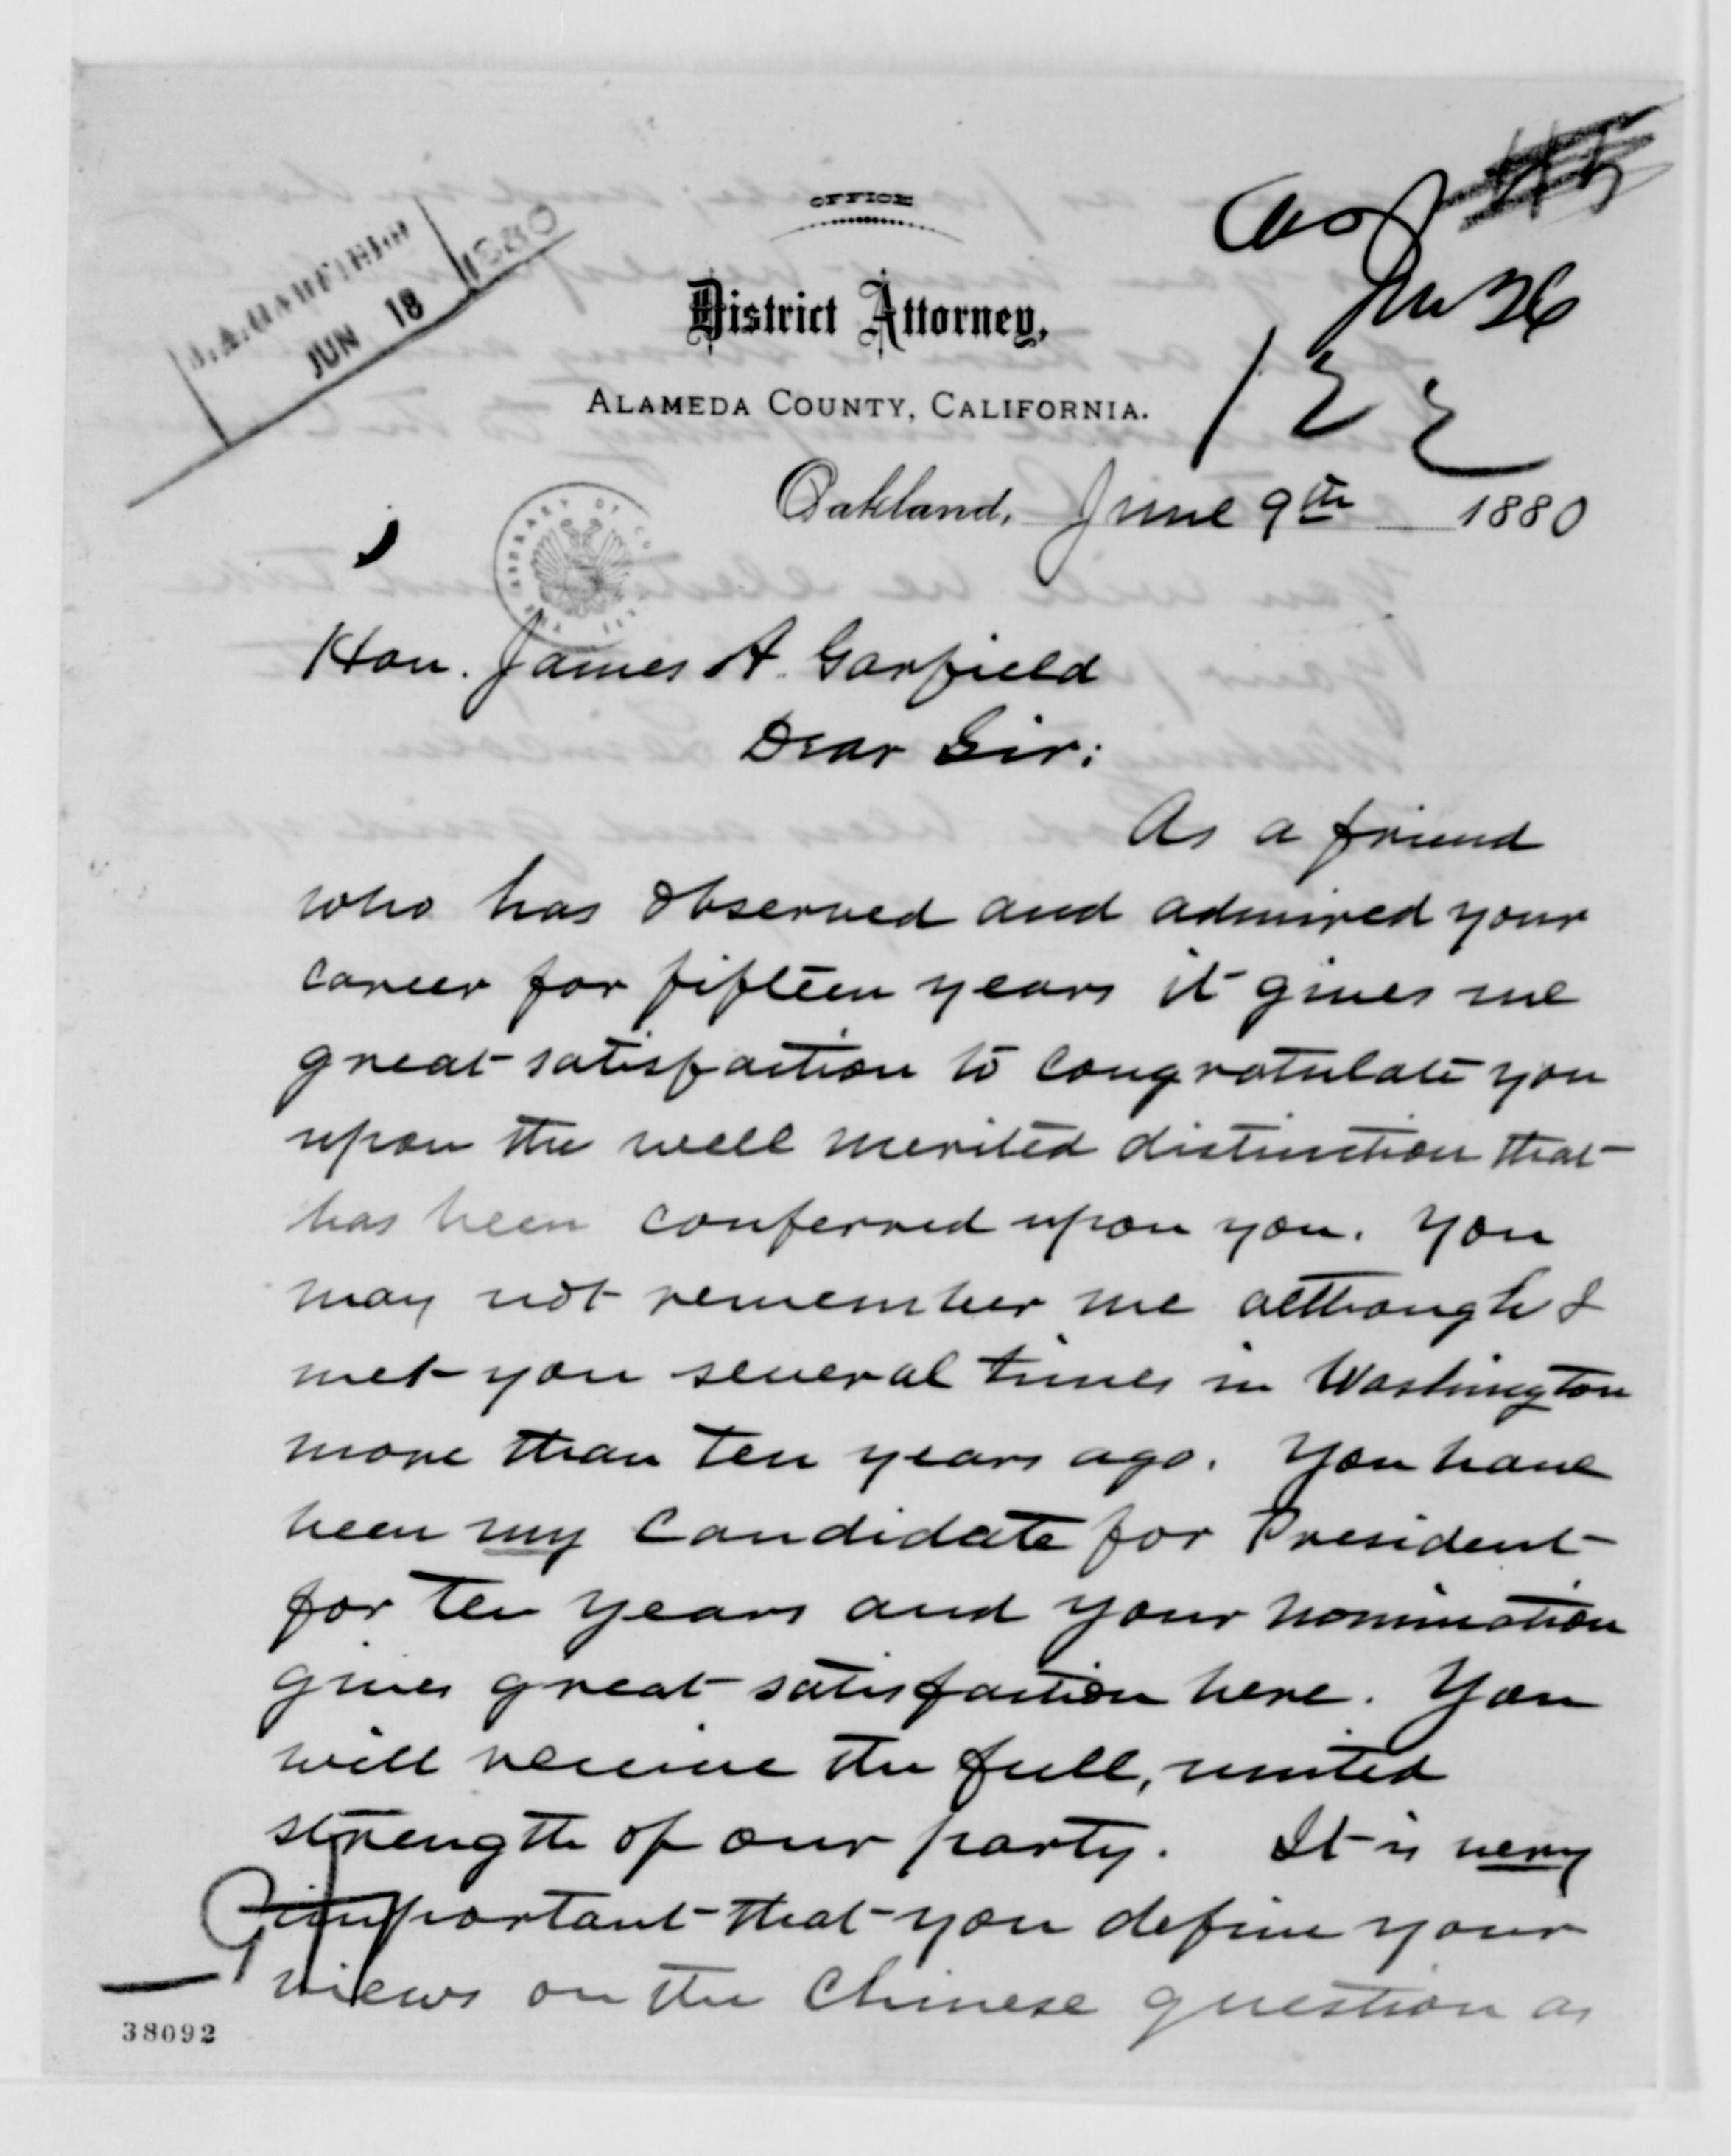 OFFICE
District Attorney,
ALAMEDA COUNTY, CALIFORNIA.
JUN 18 1880
Jun 26
122
Oakland, June 9th 1880
LIBRARY OF CO
Hon. James A. Garfield
Dear Sir:
As a friend
who has observed and admired your
career for fifteen years it gives me
great satisfaction to congratulate you
upon the well merited distinction that
has been conferred upon you. You
may not remember me although I
met you several times in Washington
more than ten years ago. You have
been my candidate for President
for ten years and your nomination
gives great satisfaction here. You
will receive the full, united
strength of our party. It is very
important that you define your
views on the Chinese question as
38092